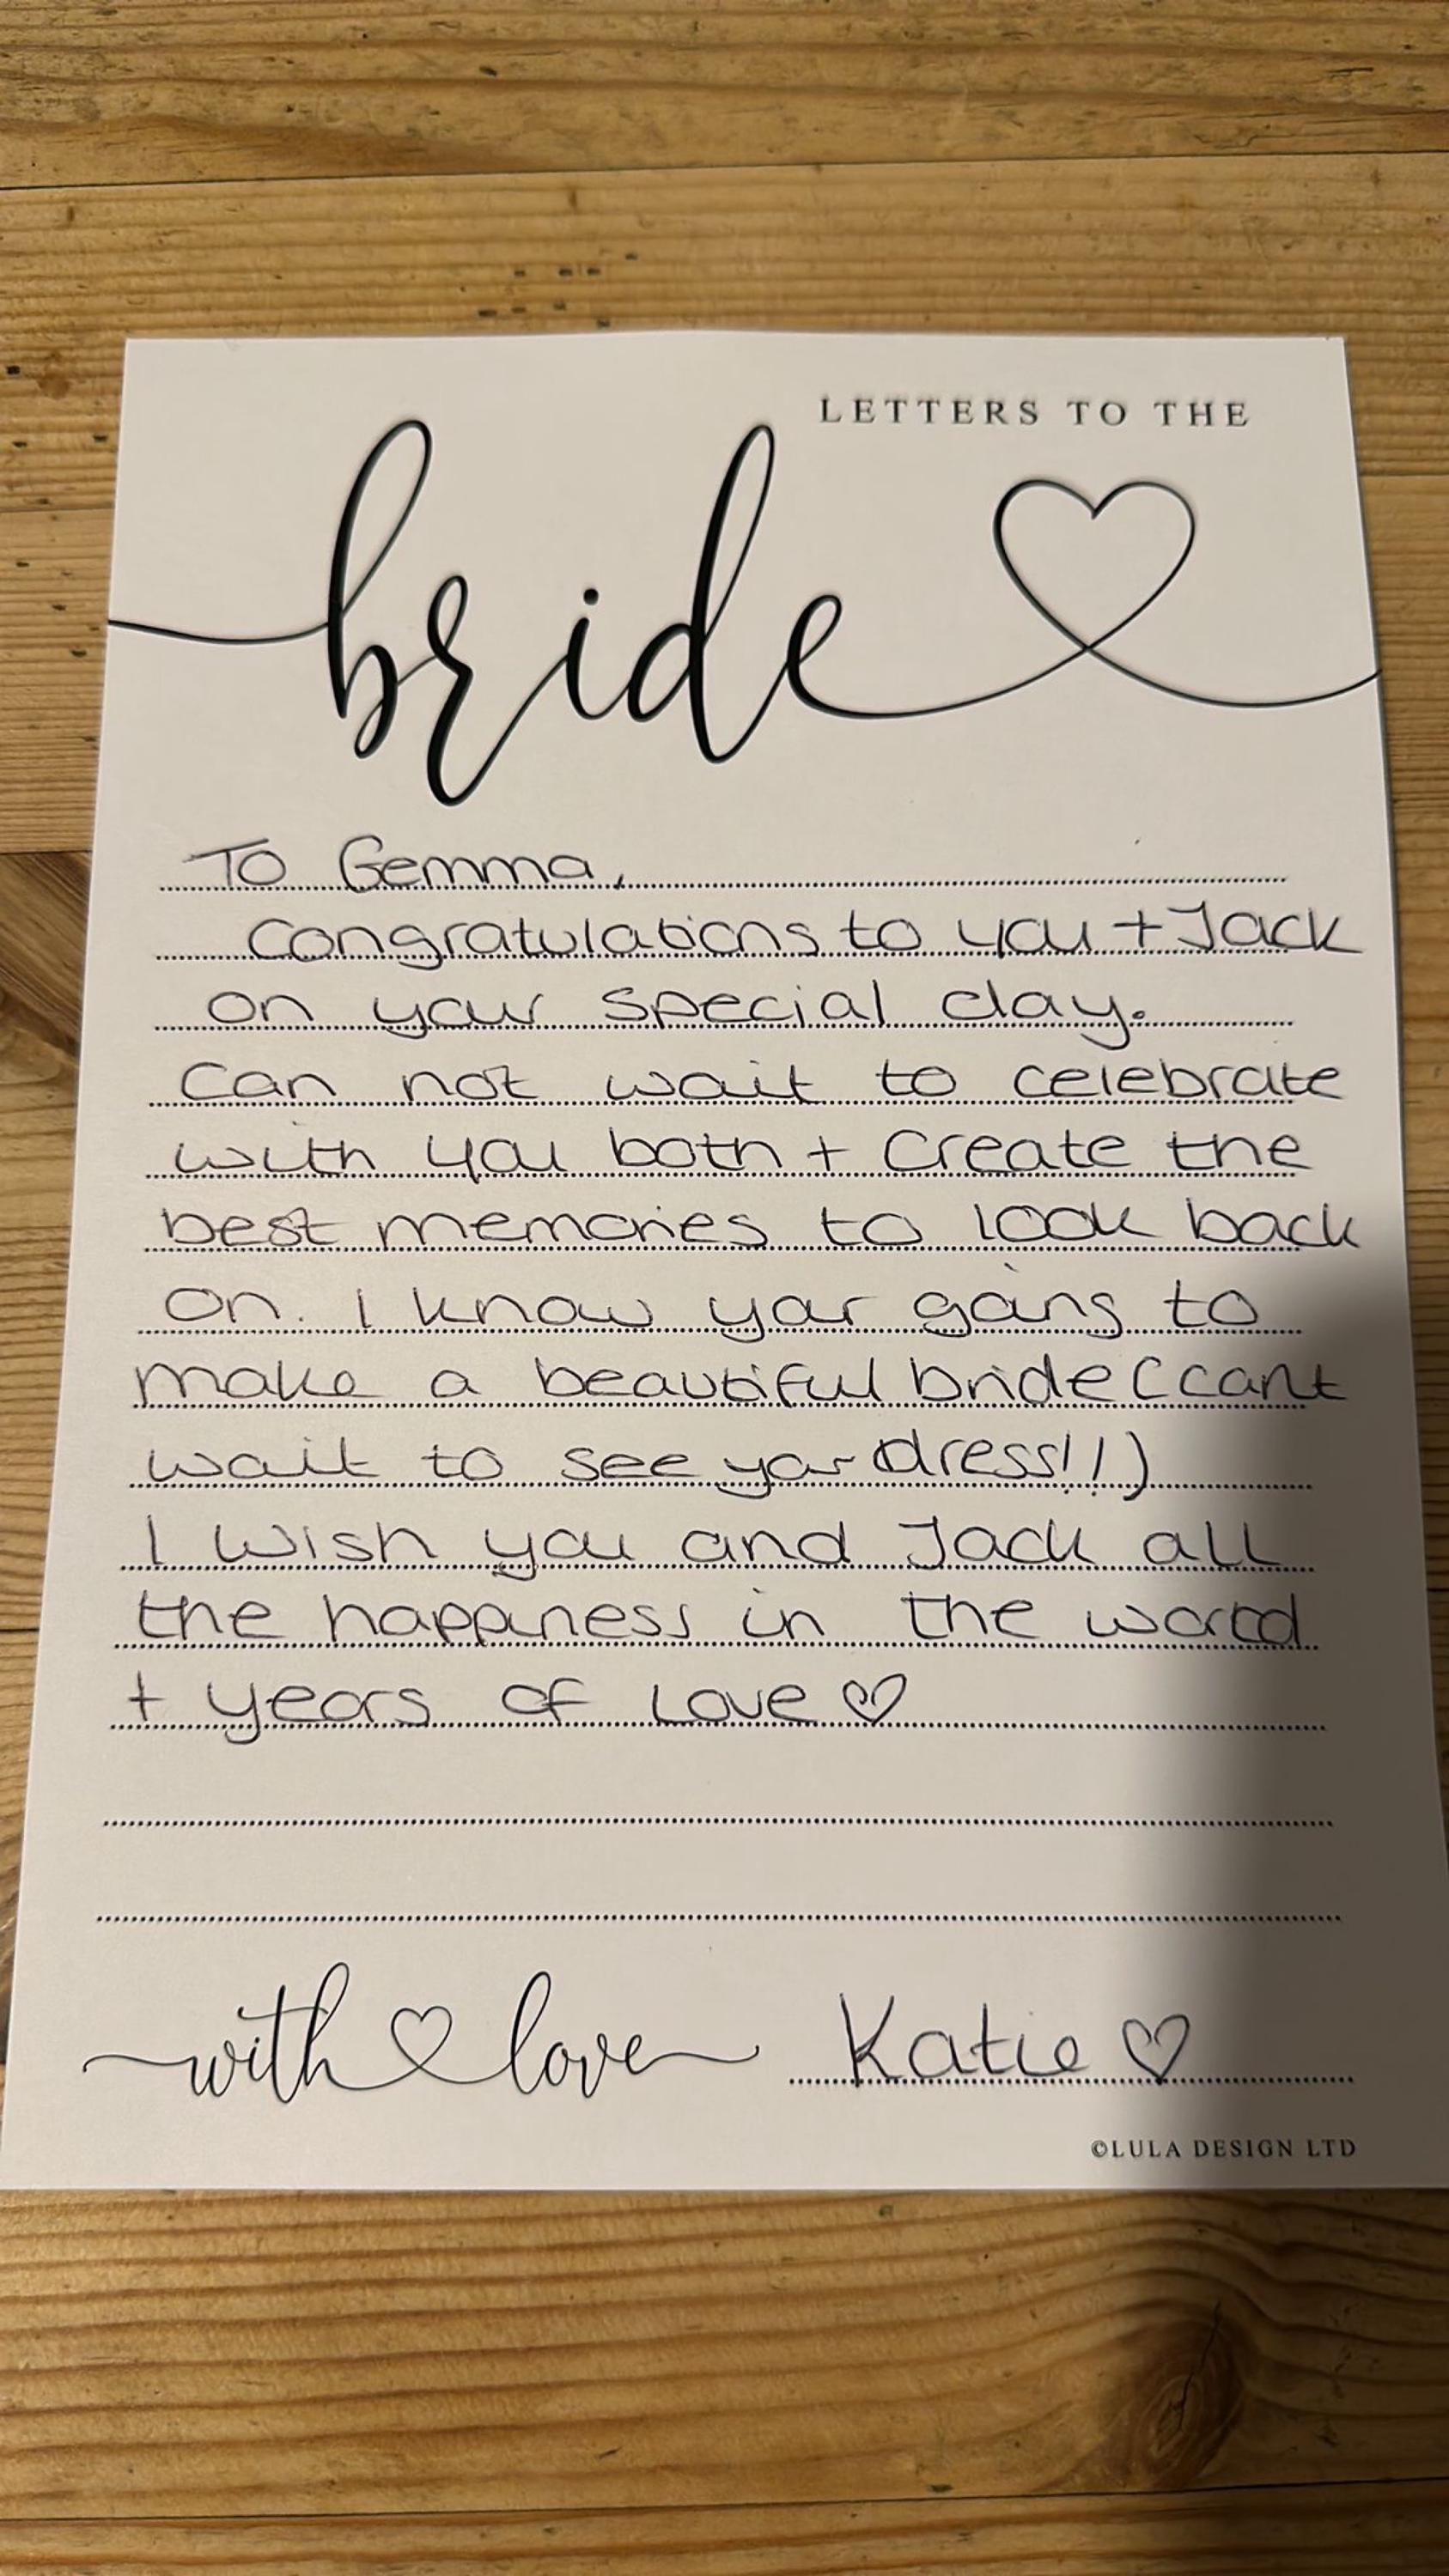 LETTERS TO THE
bride
To Gemma,
Congratulations to you + Jack
on your special day.
Can not wait to celebrate
with you both + create the
best memories to look back
on. I know your going to
make a beautiful bride (cant
wait to see your dress!!)
I wish you and Jack all
the happiness in the world
+ years of love ♡
with love Katie ♡
©LULA DESIGN LTD